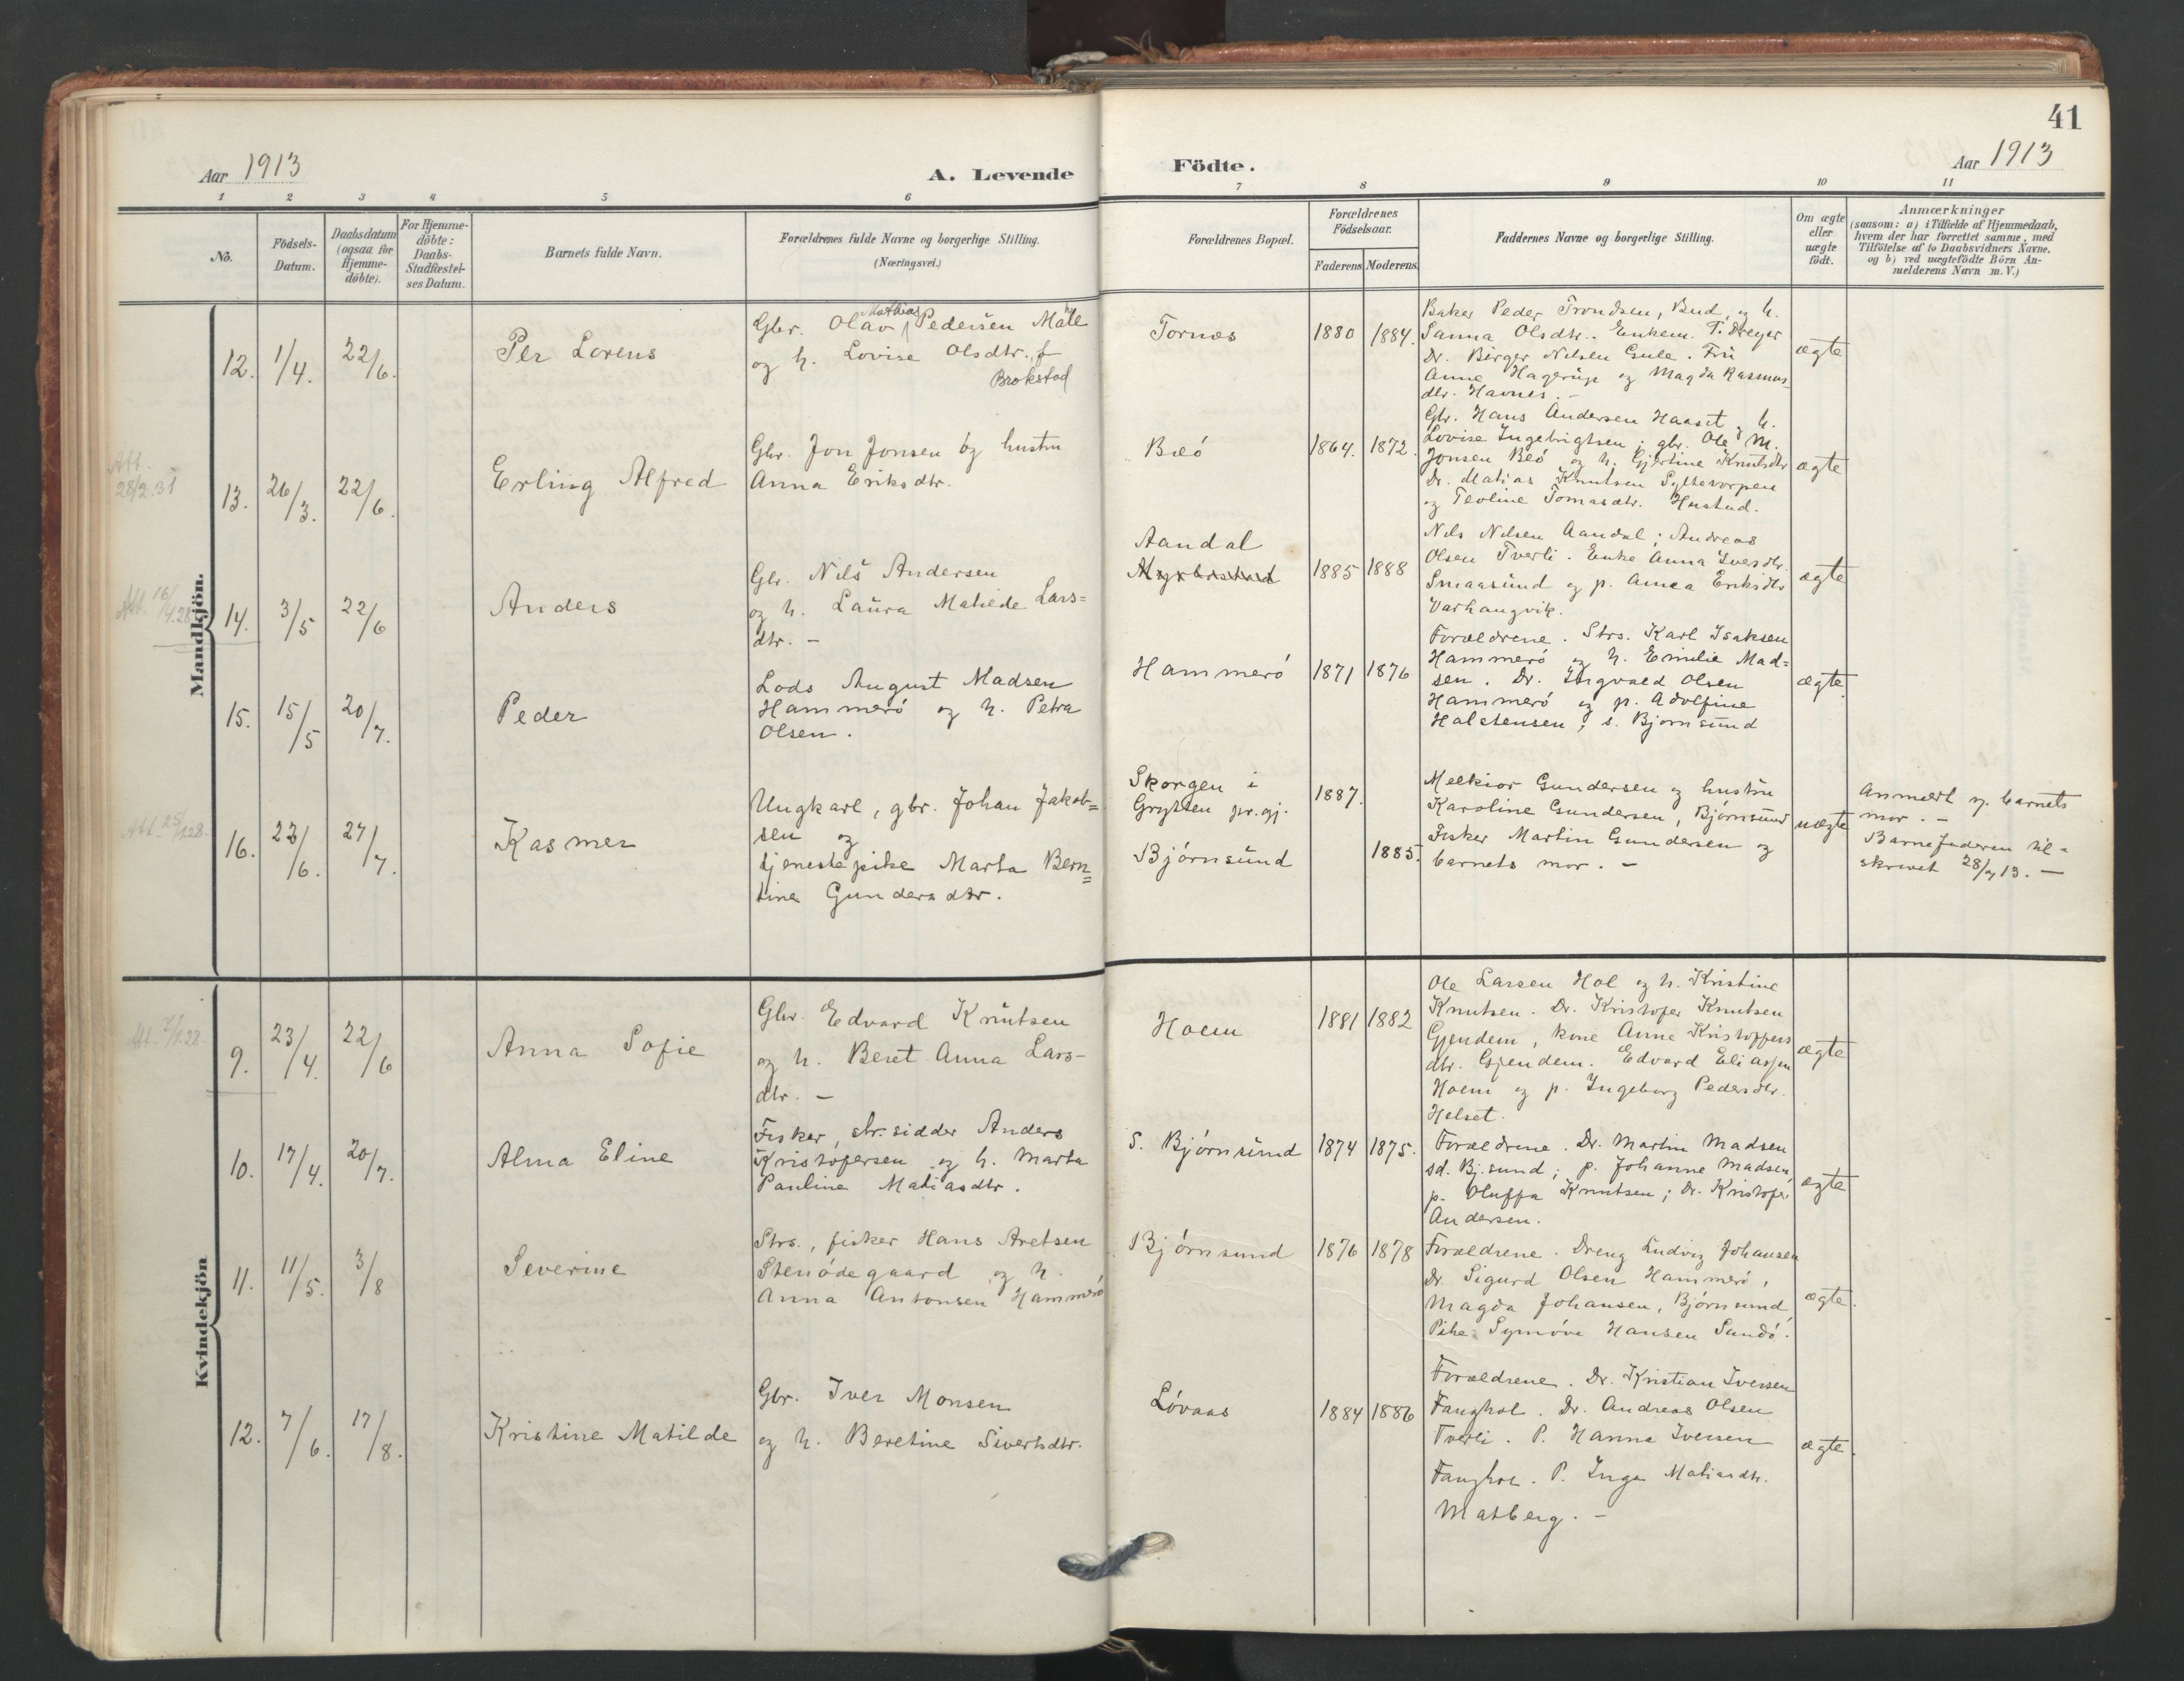 41
Aar 1913
A. Levende
Födte.
Aar 1913
1 2 3 4 5 6 7 8 9 10 11
No.
Födsels-
Datum.
Daabsdatum
(ogsaa for
Hjemme-
döbte).
For Hjemme-
döbte:
Daabs-
Stadfæstel-
ses Datum.
Barnets fulde Navn.
Forældrenes fulde Navne og borgerlige Stilling.
(Næringsvei.)
Forældrenes Bopæl.
Forældrenes
Födselsaar.
Faderens. Moderens.
Faddernes Navne og borgerlige Stilling.
Om ægte
eller
uægte
födt.
Anmærkninger
(saasom: a) i Tilfælde af Hjemmedaab,
hvem der har forrettet samme, med
Tilföielse af to Daabsvidners Navne.
og b) ved uægtefödte Börn An-
melderens Navn m. V.)
Mandkjön.
12. 1/4. 22/6.
Per Lorens
Mathias
Gbr. Olav Pedersen Male
og h. Lovise Olsdtr. f
Brokstad
Tornes
1880 1884.
Baker Peder Trondsen, Bud, og h.
Sanna Olsdtr. Enkem. T. Dreyer
Dr. Birger Nilsen Gule. Fru
Anne Hagerup og Magda Rasmus-
dtr. Havnes. -
ægte
Att.
28/2.31
13. 26/3. 22/6.
Erling Alfred
Gbr. Jon Jonsen og hustru
Anna Eriksdtr.
Beó
1864. 1872.
Gbr. Hans Andersen Haaset og h.
Lovise Ingebrigtsen; gbr. Ole M.
Jonsen Beó og h. Gjertine Knutsdtr
Dr. Matias Knutsen Syltevorpen
og Teoline Tomasdtr. Hustad.
ægte
Att. 16/4.28
14. 3/5 22/6
Anders
Gbr. Nils Andersen
og h. Laura Matilde Lars=
dtr. -
Aandal
Myrbostad
1885 1888
Nils Nilsen Aandal; Andreas
Olsen Tverli. Enke Anna Iversdtr.
Smaasund og p. Anna Eriksdtr
Varhaugvik.
ægte
15. 15/5 20/7.
Peder
Lods August Madsen
Hammeró og h. Petra
Olsen.
Hammeró
1871 1876
Forældrene. Strs. Karl Isaksen
Hammeró og h. Emilie Mad=
sen. Dr. Ingvald Olsen
Hammeró og p. Adolfine
Halstensen, s. Bjornsund
ægte.
Att. 25/1.28.
16. 23/6. 27/7.
Kasmer
Ungkarl, gbr. Johan Jakob=
sen og
tjenestepike Marta Bern=
tine Gundersdtr.
Skorgen i
Grytten pr.gj.
Bjórnsund
1887.
1885.
Melkior Gundersen og hustru
Karoline Gundersen, Bjórnsund
Fisker Martin Gundersen og
barnets mor. -
uægte
Anmeldt og. barnets
mor. -
Barnefaderen til=
skrevet 28/7 13. -
Kvindekjön
At. 7/1.28.
9. 23/4. 22/6
Anna Sofie
Gbr. Edvard Knutsen
og h. Beret Anna Lars-
dtr. -
Hoem
1881 1882
Ole Larsen Hol og h. Kristine
Knutsen. Dr. Kristofer Knutsen
Gjendem, kone Anne Kristoffers
dtr. Gjendem. Edvard Eliassen
Hoem og p. Ingeborg Pedersdtr.
Helset.
ægte
10. 17/4. 20/7.
Alma Eline
Fisker, str.sidder Anders
Kristofersen og h. Marta
Pauline Matiasdtr.
S. Bjórnsund
1874 1875.
Forældrene. Dr. Martin Madsen
sd. Bj.sund; p. Johanne Madsen,
p. Oluffa Knutsen; Dr. Kristofer
Andersen.
ægte
11. 11/5. 3/8
Severine
Strs., fisker Hans Aretsen
Stenódegaard og h.
Anna Antonsen Hammeró
Bjórnsund
1876 1878
Forældrene. Dreng Ludvig Johansen
Dr. Sigurd Olsen Hammeró,
Magda Johansen, Bjórnsund,
Pike Synnóve Hansen Sandó.
ægte.
12. 7/6. 17/8.
Kristine Matilde
Gbr. Iver Monsen
og h. Beretine Sivertsdtr.
Lóvaas
1884 1886
Forældrene. Dr. Kristian Iversen
Fanghol. Dr. Andreas Olsen
Tverli. P. Hanna Iversen
Fanghol. P. Inga Matiasdtr.
Matberg. -
ægte.